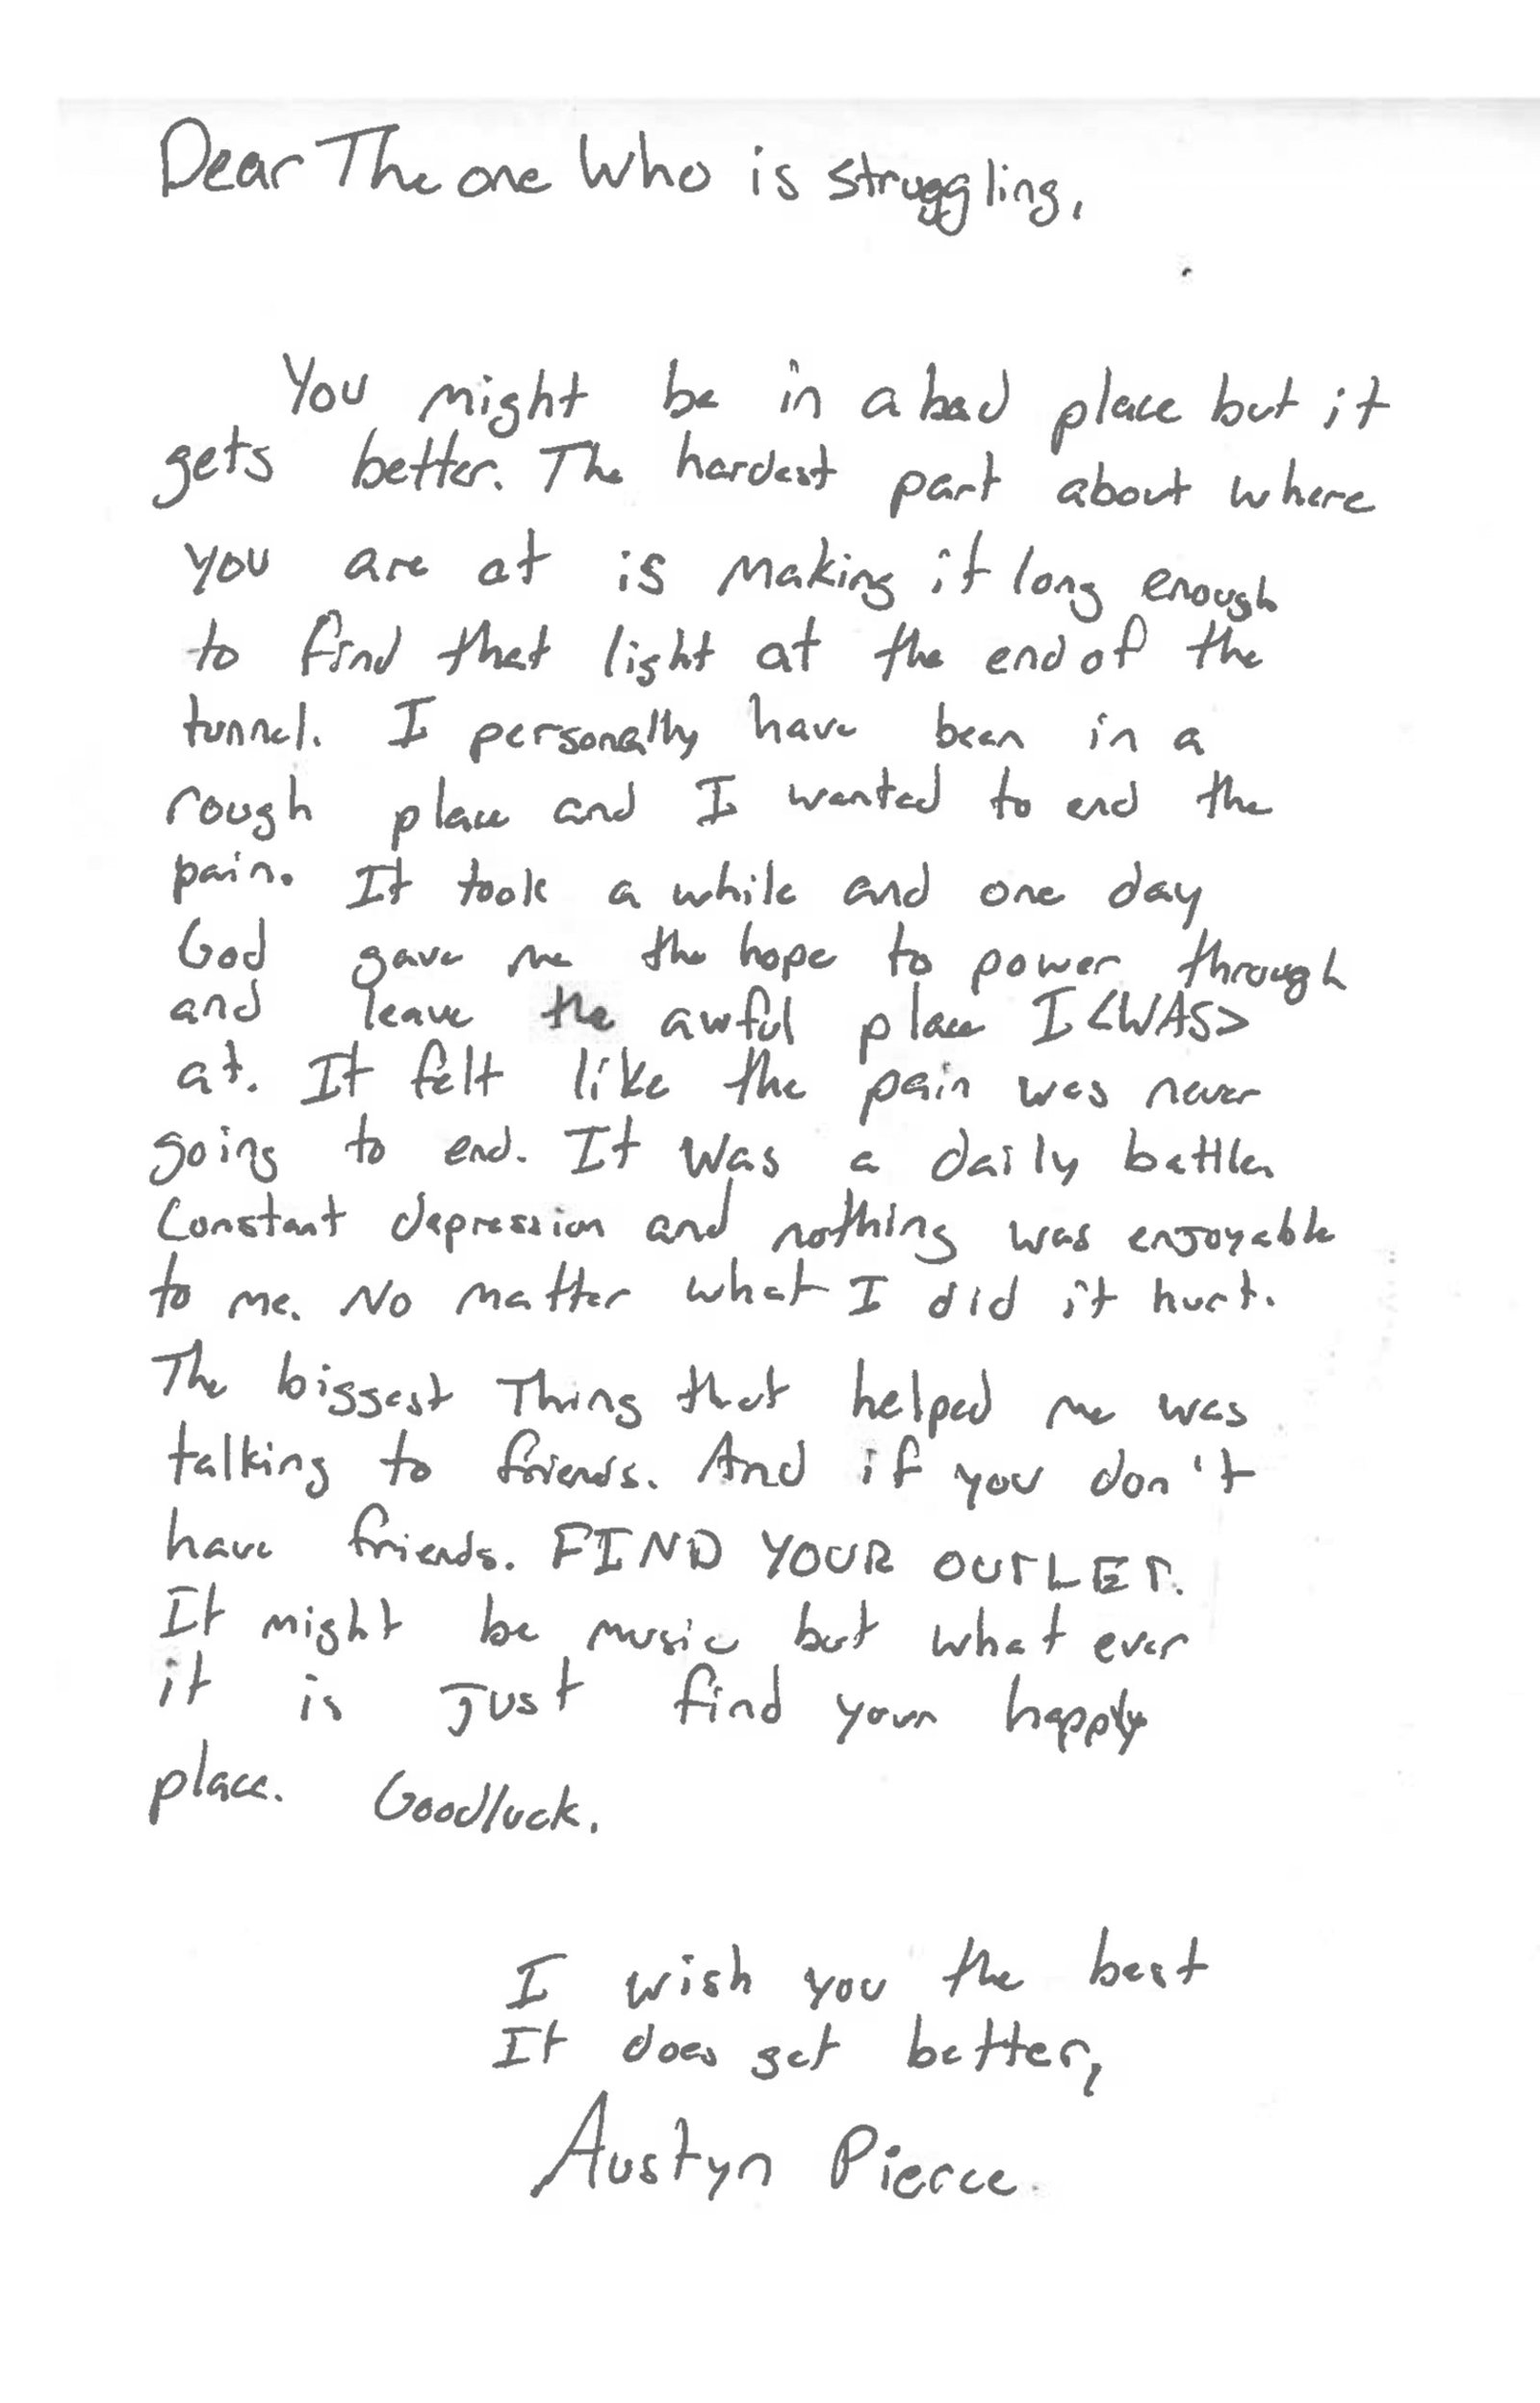 Dear The one Who is struggling,
You might be in a bad place but it
gets better. The hardest part about where
you are at is making it long enough
to find that light at the end of the
tunnel. I personally have been in a
rough place and I wanted to end the
pain. It took a while and one day
God gave me the hope to power through
and leave the awful place I <WAS>
at. It felt like the pain was never
going to end. It was a daily battle.
Constant depression and nothing was enjoyable
to me. No matter what I did it hurt.
The biggest Thing that helped me was
talking to friends. And if you don't
have friends. FIND YOUR OUTLET.
It might be music but what ever
it is just find your happy
place. Goodluck.
I wish you the best
It does get better,
Austyn Pierce